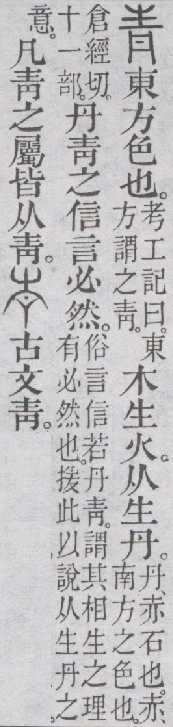 靑東方色也。考工記曰。東方謂之靑。木生火。从生丹。丹、赤石也。赤、南方之色也。
倉經切。十一部。丹靑之信言必然。俗言信若丹靑。謂其相生之理有必然也。援此以說从生丹之
意。凡靑之屬皆从靑。古文靑。